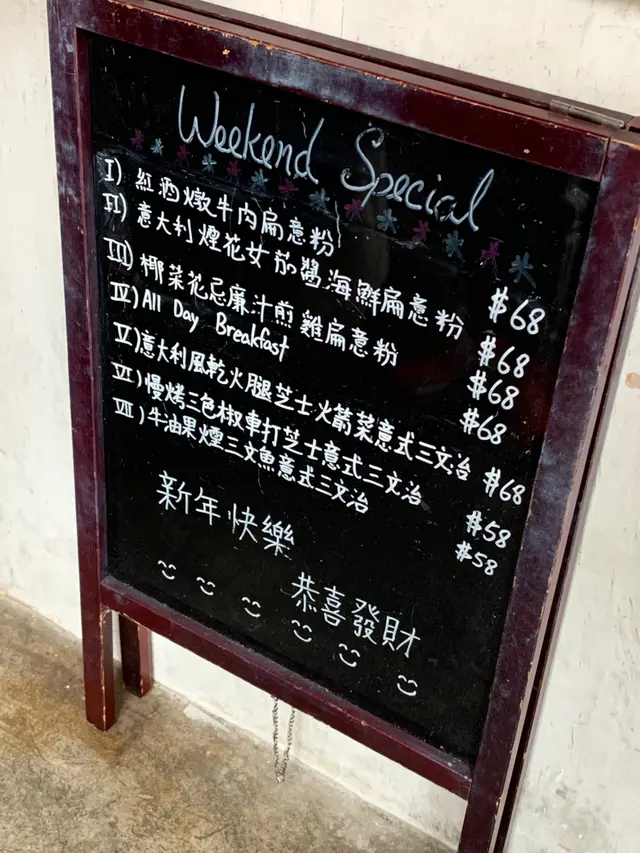 Weekend Special
I) 紅酒燉牛肉扁意粉 $68
II) 意大利煙花女茄醬海鮮扁意粉 $68
III) 椰菜花忌廉汁煎雞扁意粉 $68
IV) All Day Breakfast $68
V) 意大利風乾火腿芝士火箭菜意式三文治 $68
VI) 慢烤三色椒車打芝士意式三文治 $58
VII) 牛油果煙三文魚意式三文治 $58
新年快樂
恭喜發財